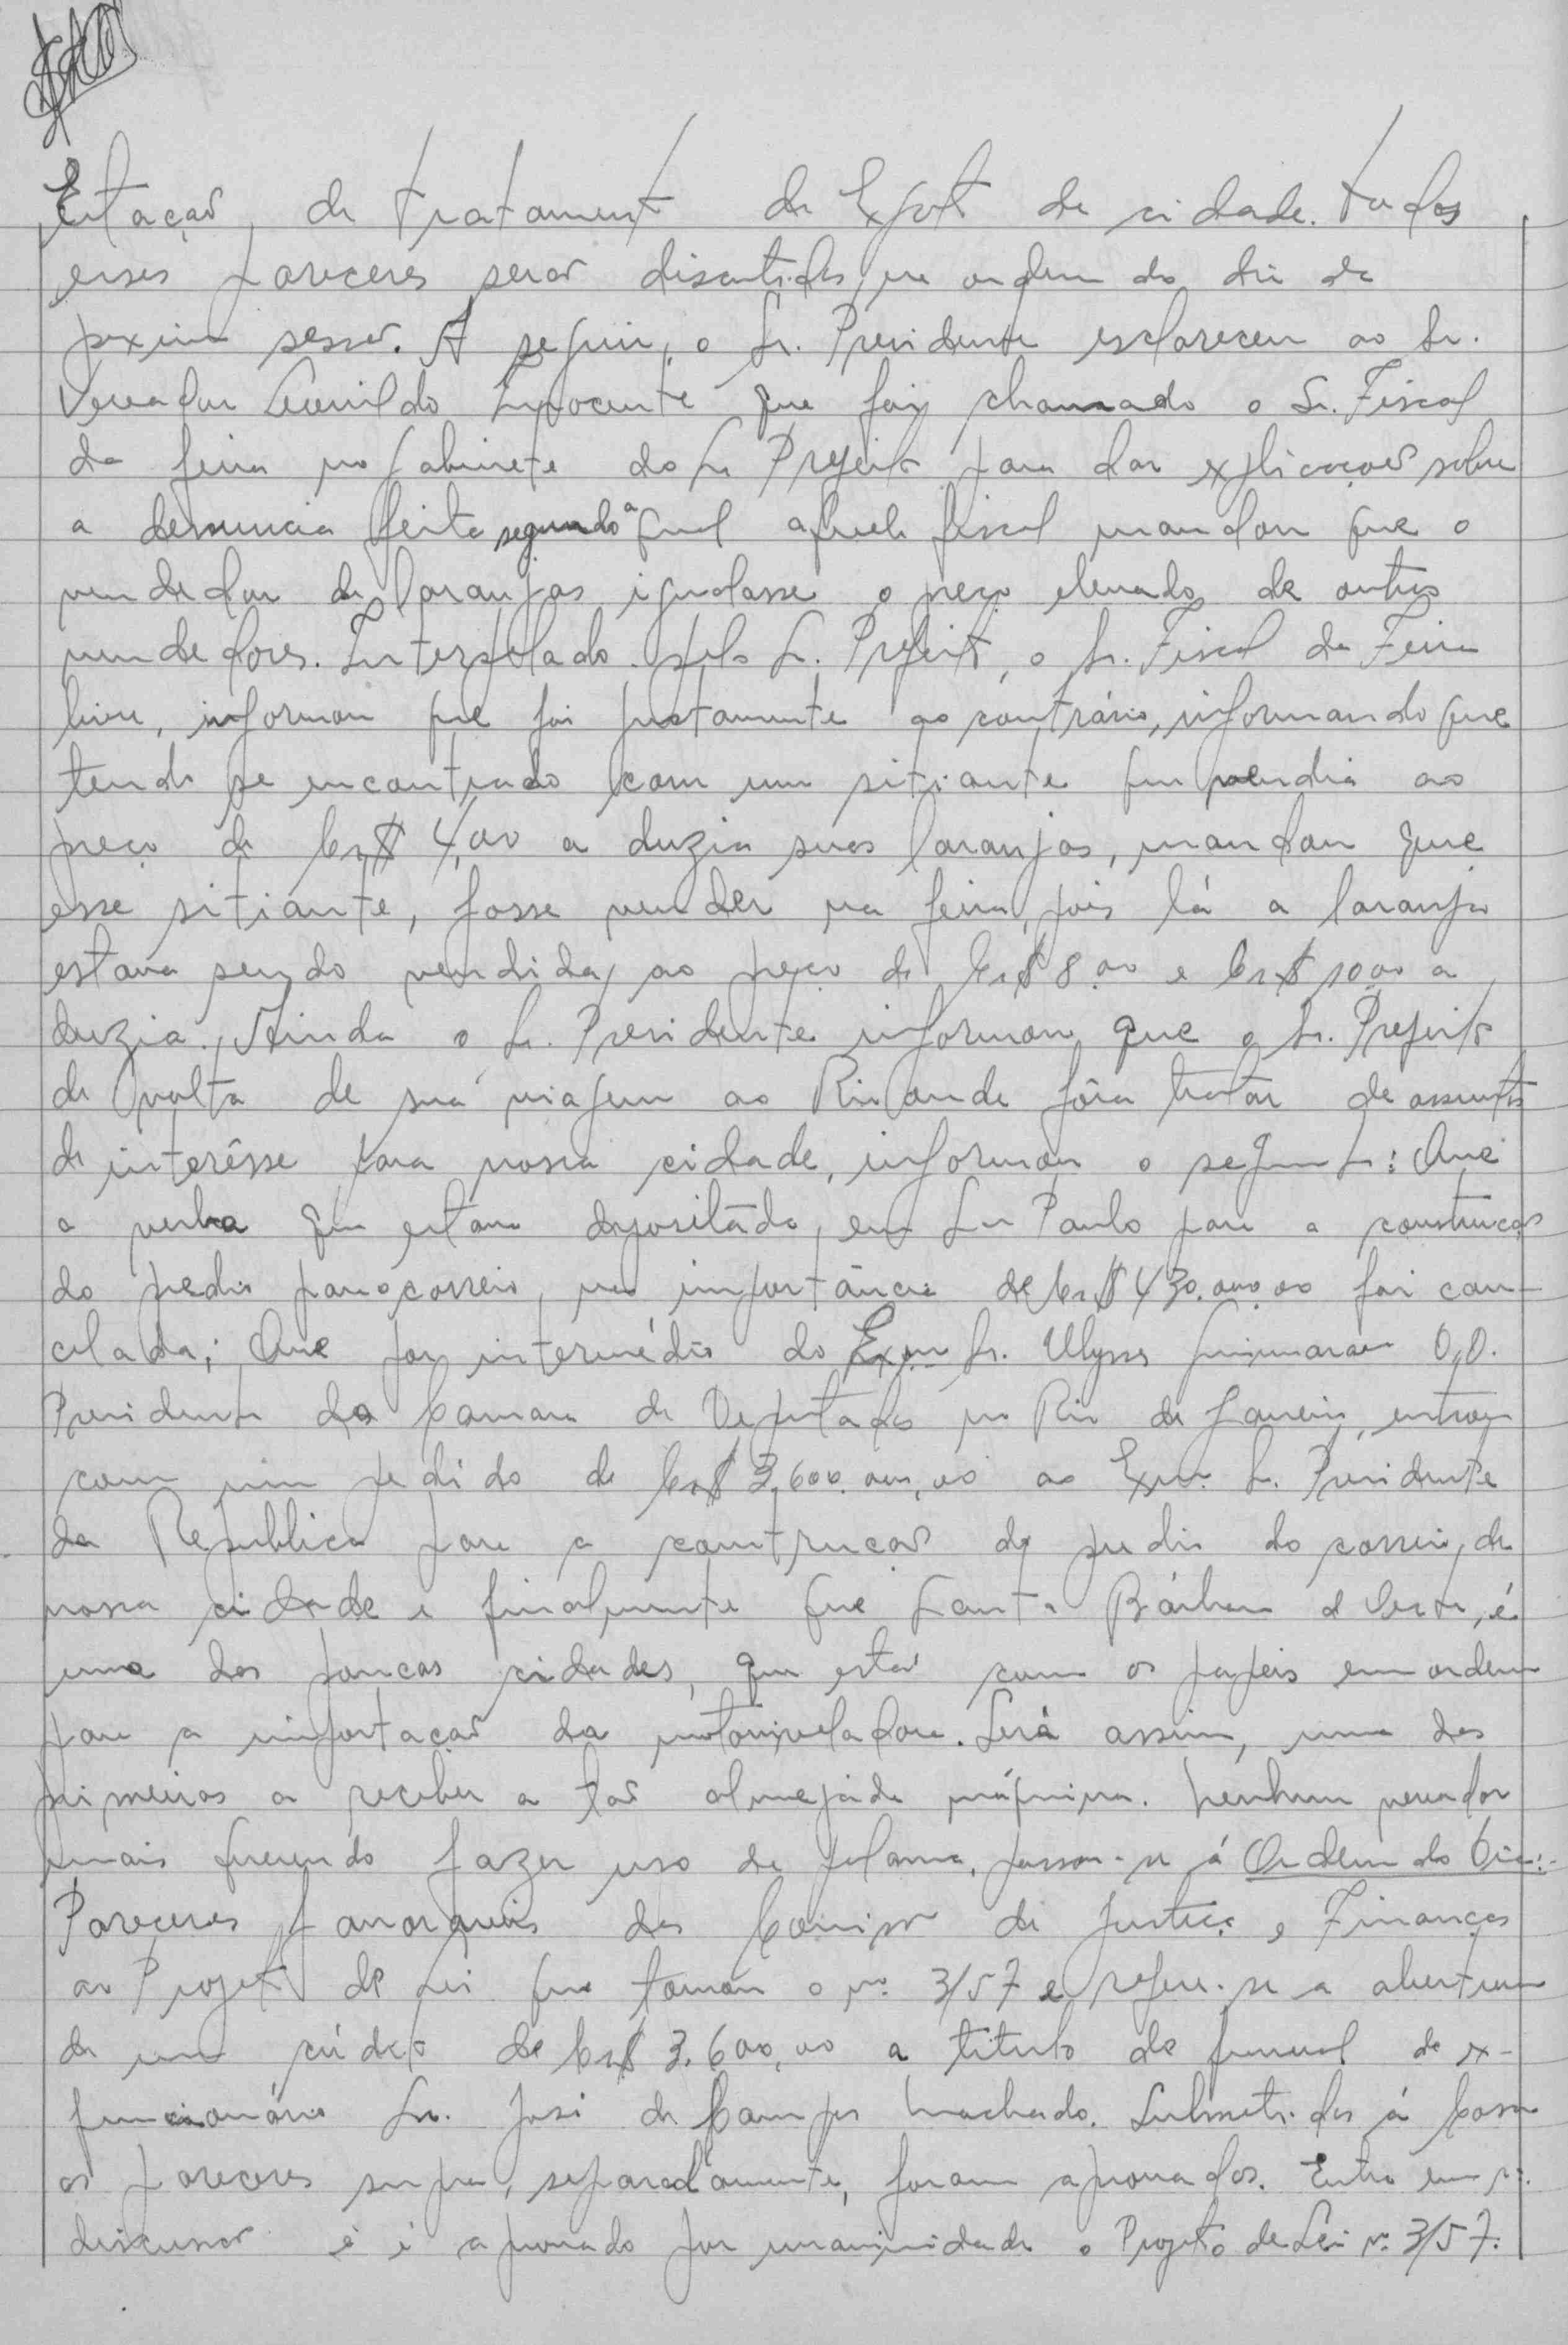 Estação, de tratamento de Esgoto da cidade. Todos
esses pareceres serão discutidos na ordem do dia da
proxima sessão. A seguir, o Sr. Presidente esclareceu ao Sr.
Vereador Leonildo Inocente que foi chamado o Sr. Fiscal
da feira no gabinete do Sr Prefeito para dar explicações sobre
a denuncia feita segundo a qual aquele fiscal mandou que o
vendedor de laranjas igualasse o preço elevado de outros
vendedores. Interpelado pelo Sr. Prefeito, o Sr. Fiscal da Feira
livre, informou que foi justamente ao contrário, informando que
tendo se encontrado com um sitiante que vendia ao
preço de Cr$ 4,00 a duzia suas laranjas, mandou que
esse sitiante, fosse vender na feira, pois lá a laranja
estava sendo vendida, ao preço de Cr$ 8,00 e Cr$ 10,00 a
duzia. Ainda o Sr. Presidente informou que o Sr. Prefeito
de volta de sua viagem ao Rio onde fôra tratar de assuntos
de interêsse para nossa cidade, informou o seguinte: Que
a verba que estava depositada, em São Paulo para a construção
do predio para o correio, na importância de Cr$ 430.000,00 foi can-
celada; Que por intermédio do Exmo Sr. Ulysses Guimarães D.D.
Presidente da Camara de Deputados no Rio de Janeiro, entrou
com um pedido de Cr$ 3.600.000,00 ao Exmo. Sr. Presidente
da Republica para a construção do predio do correio, de
nossa cidade e finalmente que Santa Bárbara d'Oeste, é
uma das poucas cidades, que estão com os papeis em ordem
para a importação da motoniveladora. Será assim, uma das
primeiras a receber a tão almejada máquina. Nenhum vereador
mais querendo fazer uso da palavra, passou-se á Ordem do Dia:-
Pareceres favoraveis das Comissão de Justiça e Finanças
ao Projeto de Lei que tomou o nº 3/57 e refere-se a abertura
de um crédito de Cr$ 3.600,00 a titulo de funeral do ex-
funcionário Sr. José de Campos Machado. Submetidos á Casa
os pareceres supra, separadamente, foram aprovados. Entra em 1ª
discussão e é aprovado por unanimidade o Projeto de Lei nº 3/57.